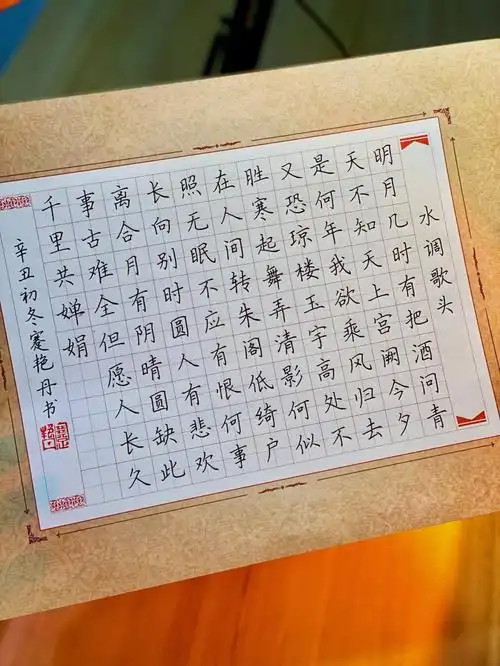 水调歌头
明月几时有把酒问青
天不知天上宫阙今夕
是何年我欲乘风归去
又恐琼楼玉宇高处不
胜寒起舞弄清影何似
在人间转朱阁低绮户
照无眠不应有恨何事
长向别时圆人有悲欢
离合月有阴晴圆缺此
事古难全但愿人长久
千里共婵娟
辛丑初冬蹇艳丹书